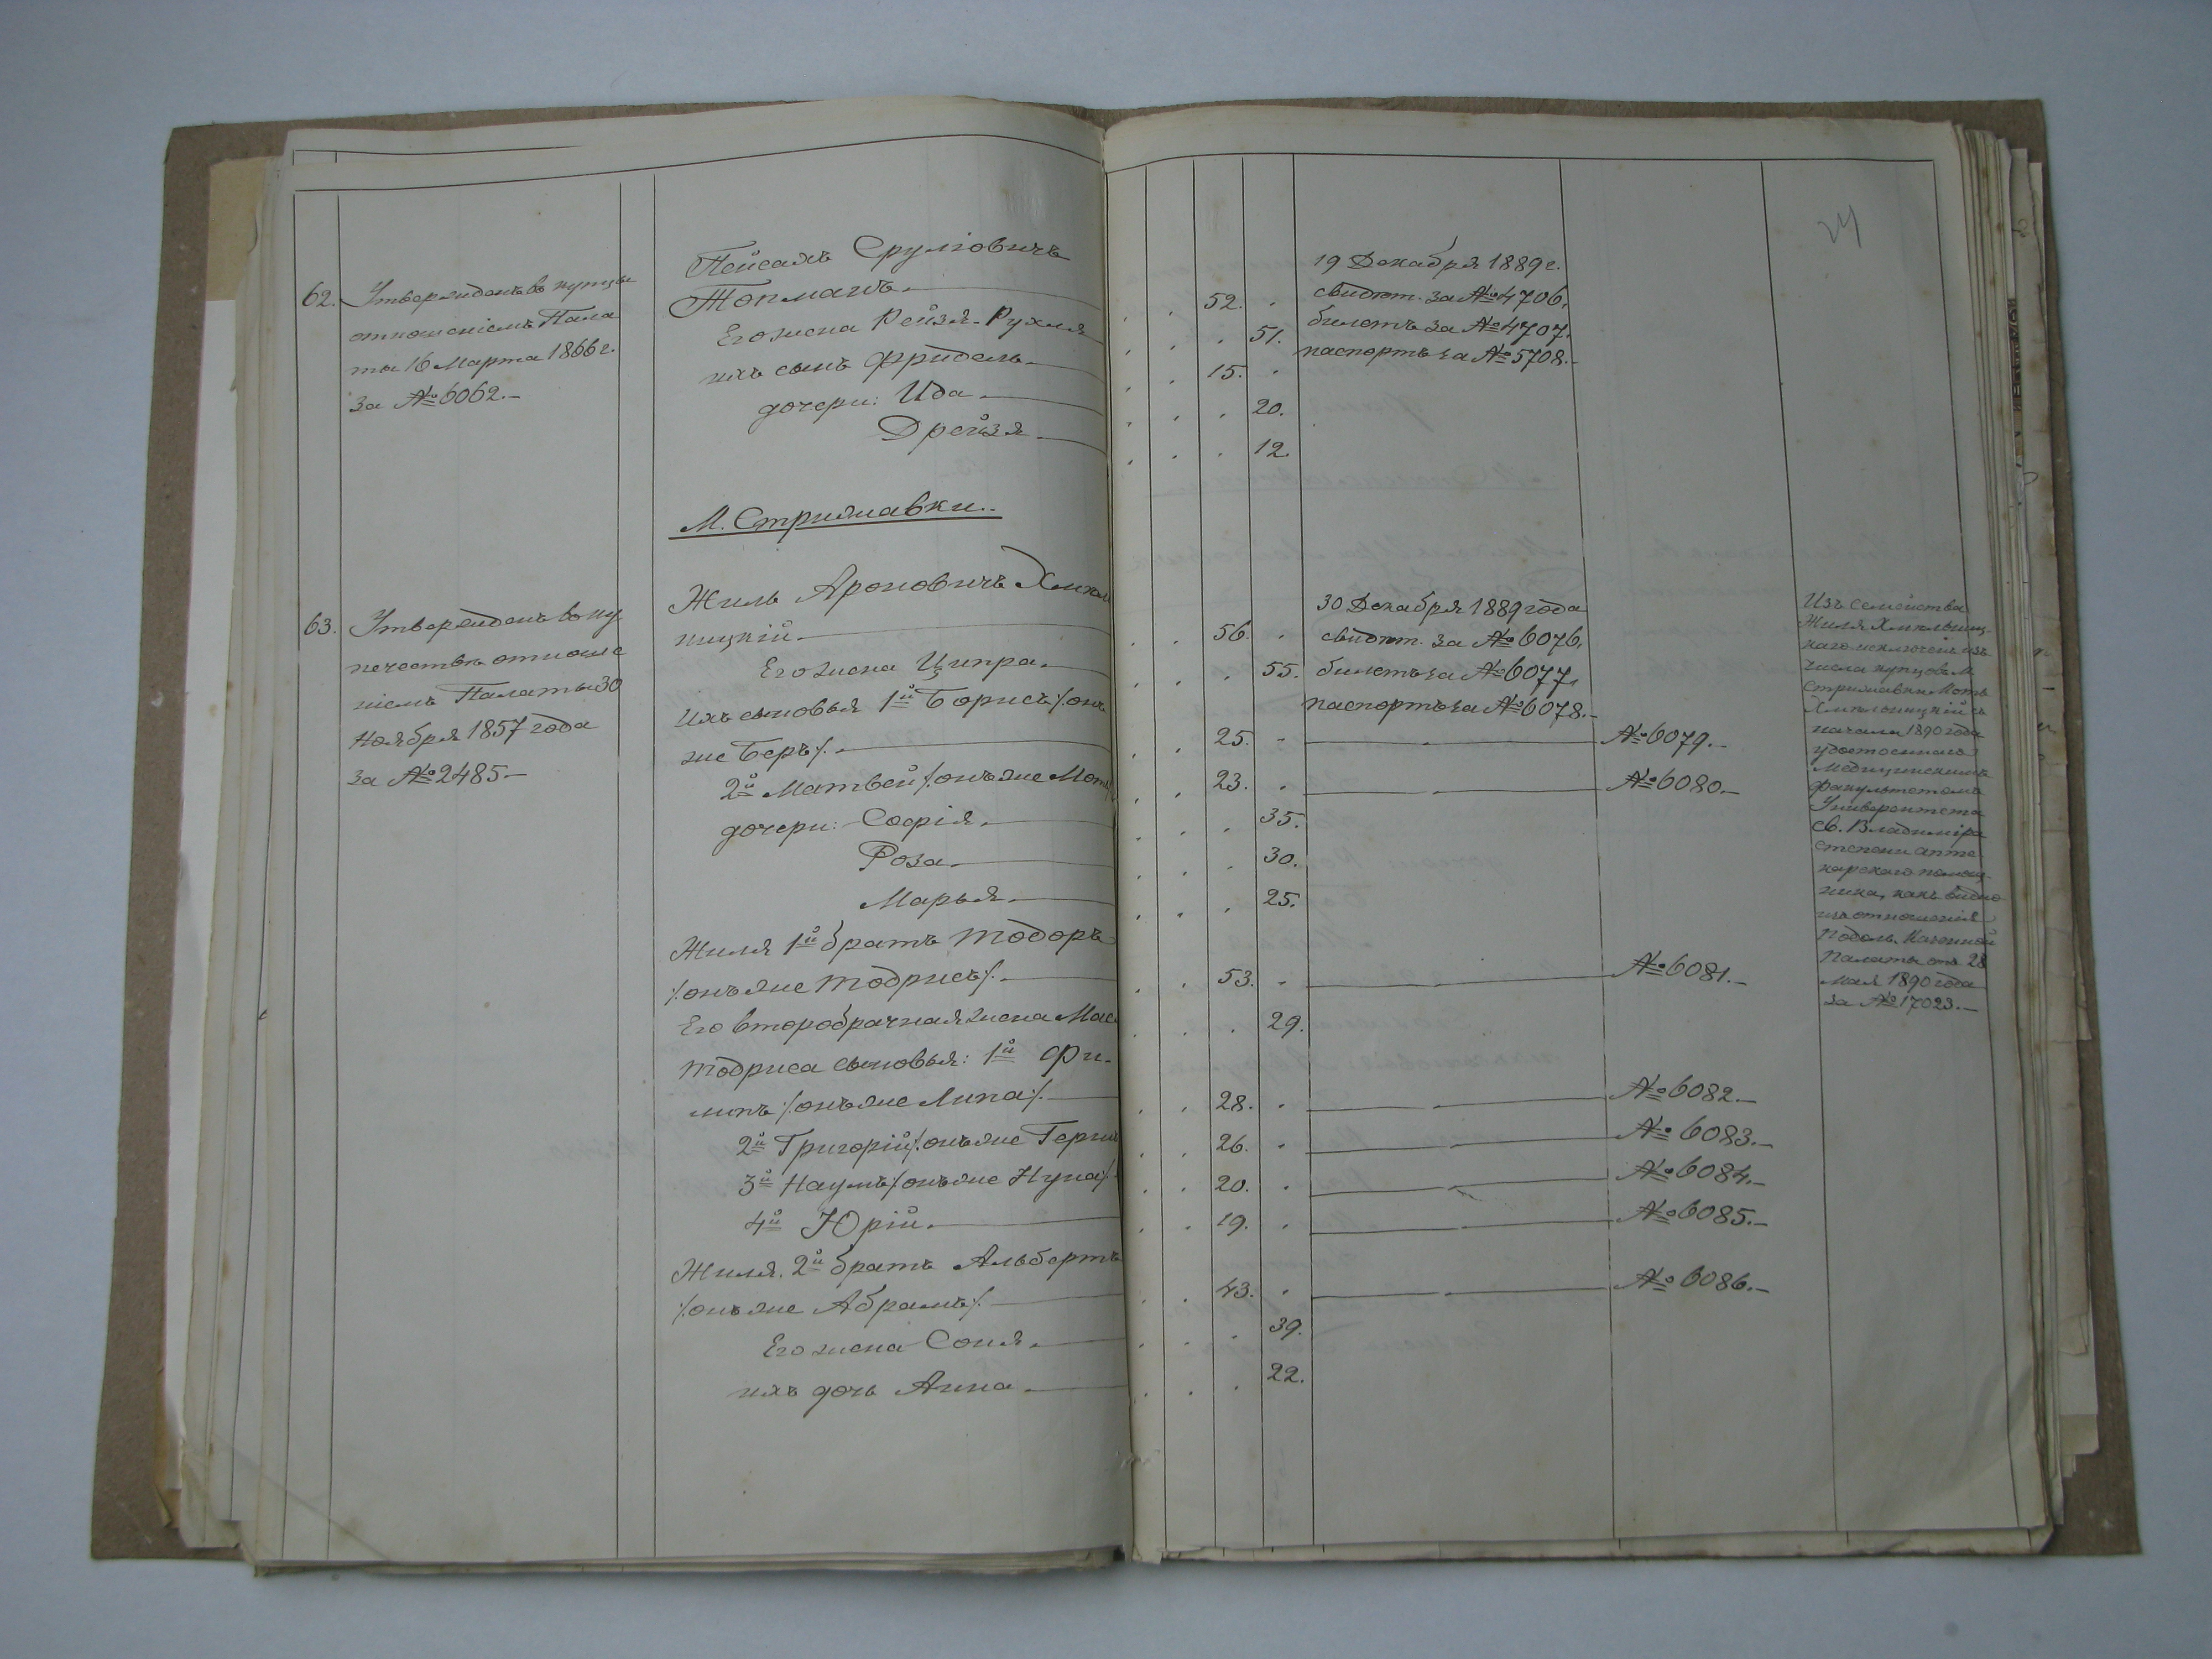 24
62.
Утвержденъ въ купцы
отношеніемъ Пала
ты 16 Марта 1866 г.
за № 6062.–
Пейсахъ Сруліовичъ
Топманъ.
Его жена Рейзя-Рухля
ихъ сынъ Фридель
дочери: Ида.
Дрейзя.
52.
51.
15.
20.
12.
19 Декабря 1889 г.
свидѣт. за № 4706,
билетъ за № 4707,
паспортъ за № 5708.–
М. Стрижавки.
63.
Утвержденъ въ ку
печество отноше
ніемъ Палаты 30
Ноября 1857 года
за № 2485.–
Жиль Ароновичъ Хмѣль
ницкій.
Его жена Ципра.
Ихъ сыновья 1й Борисъ /онъ
же Беръ/.
2й Матвей /онъ же Моть/
дочери: Софія.
Роза.
Марья.
Жиля 1й братъ Тодоръ
/онъ же Тодрисъ/.
Его второбрачная жена
Тодриса сыновья: 1й Фи-
липъ /онъ же Липа/.
2й Григорій /онъ же Герш
3й Наумъ /онъ же Нуна/
4й Юрій.
Жиля 2й братъ Альбертъ
/онъ же Абрамъ/.
Его жена Соня.
ихъ дочь Анна.
56.
55.
25.
23.
35.
30.
25.
53.
29.
28.
26.
20.
19.
43.
39.
22.
30 Декабря 1889 года
свидѣт. за № 6076,
билетъ за № 6077,
паспортъ за № 6078.–
№ 6079.–
№ 6080.–
№ 6081.–
№ 6082.–
№ 6083.–
№ 6084.–
№ 6085.–
№ 6086.–
Изъ семейства
Жиля Хмѣльниц-
каго исключенъ изъ
числа купцовъ М.
Стрижавки Моть
Хмѣльницкій съ
начала 1890 года
удостоенный
Медицинскимъ
факультетомъ
Университета
св. Владиміра
степени апте-
карскаго помощ-
ника, какъ видно
изъ отношенія
Подоль. Казенной
Палаты отъ 28
Мая 1890 года
за № 17023.–